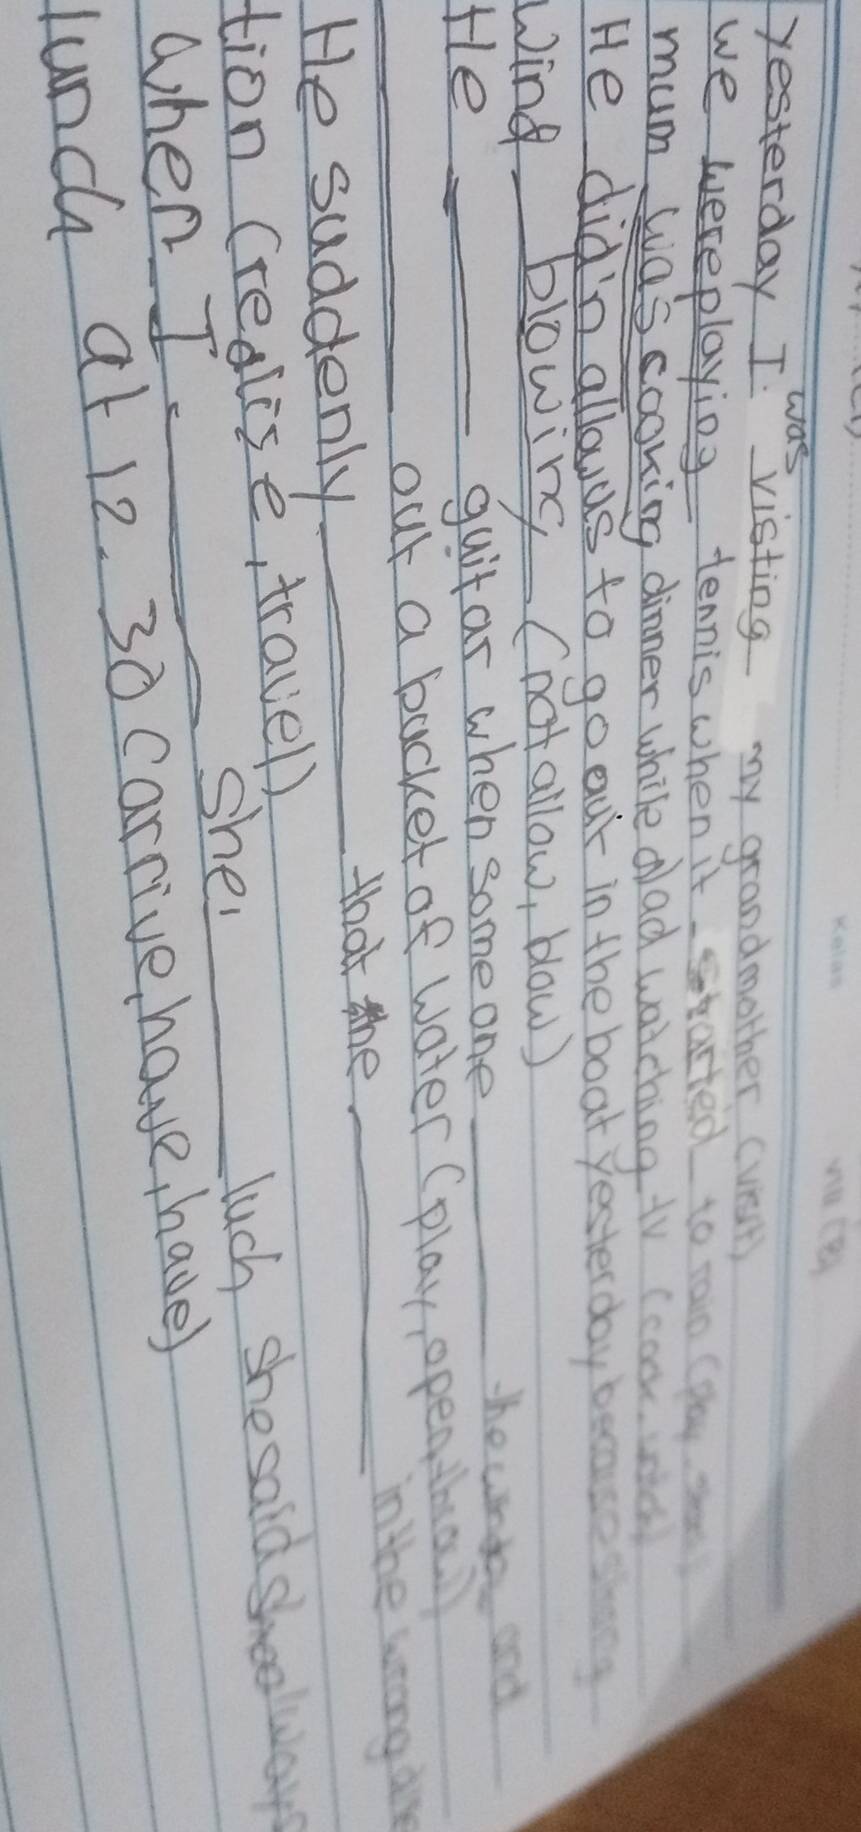 was
Yesterday I visting my grandmother (visit)
we wereplaying tennis when it started to rain (play, start)
mum was cooking dinner while dad watching tv (cook, watch)
He did'n allowus to go out in the boat yesterday because strong
wind blowing (not allow, blow)
He guitar when someone the window and
out a bucket of water (play, open, throw)
He suddenly that he in the wrong dire
tion (realise, travel)
when I she luch, she said
lunch at 12.30 (arrive, have, have)